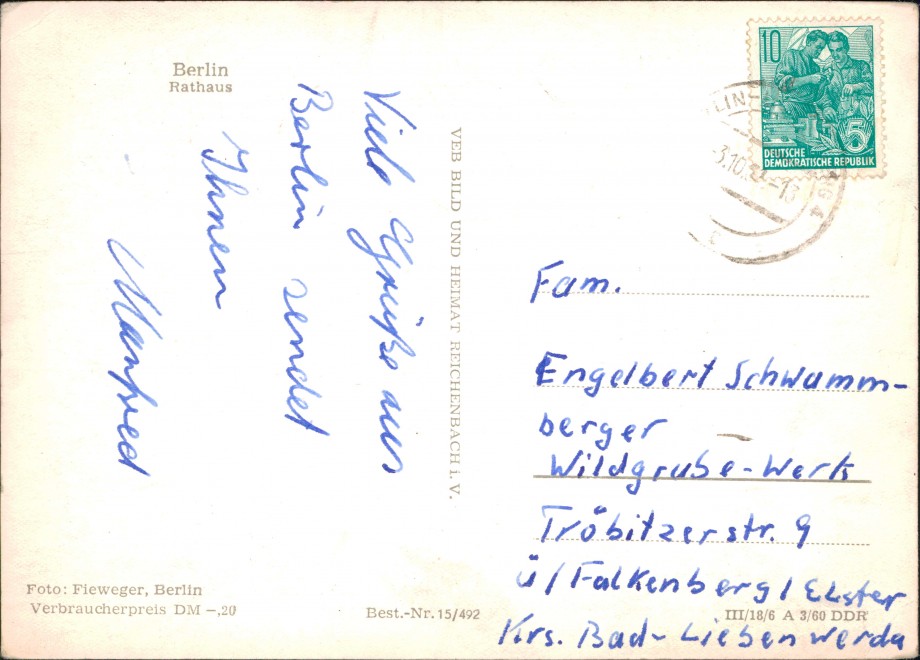 Berlin
Rathaus
Viele Grüße aus
Berlin sendet
Ihnen
Manfred
VEB BILD UND HEIMAT REICHENBACH i. V.
10
5
DEUTSCHE
DEMOKRATISCHE REPUBLIK
Fam.
Engelbert Schwamm-
berger
Wildgrube-Werk
Tröbitzerstr. 9
ü/Falkenberg/Elster
Krs. Bad-Liebenwerda
Foto: Fieweger, Berlin
Verbraucherpreis DM -,20
Best.-Nr. 15/492
III/18/6 A 3/60 DDR